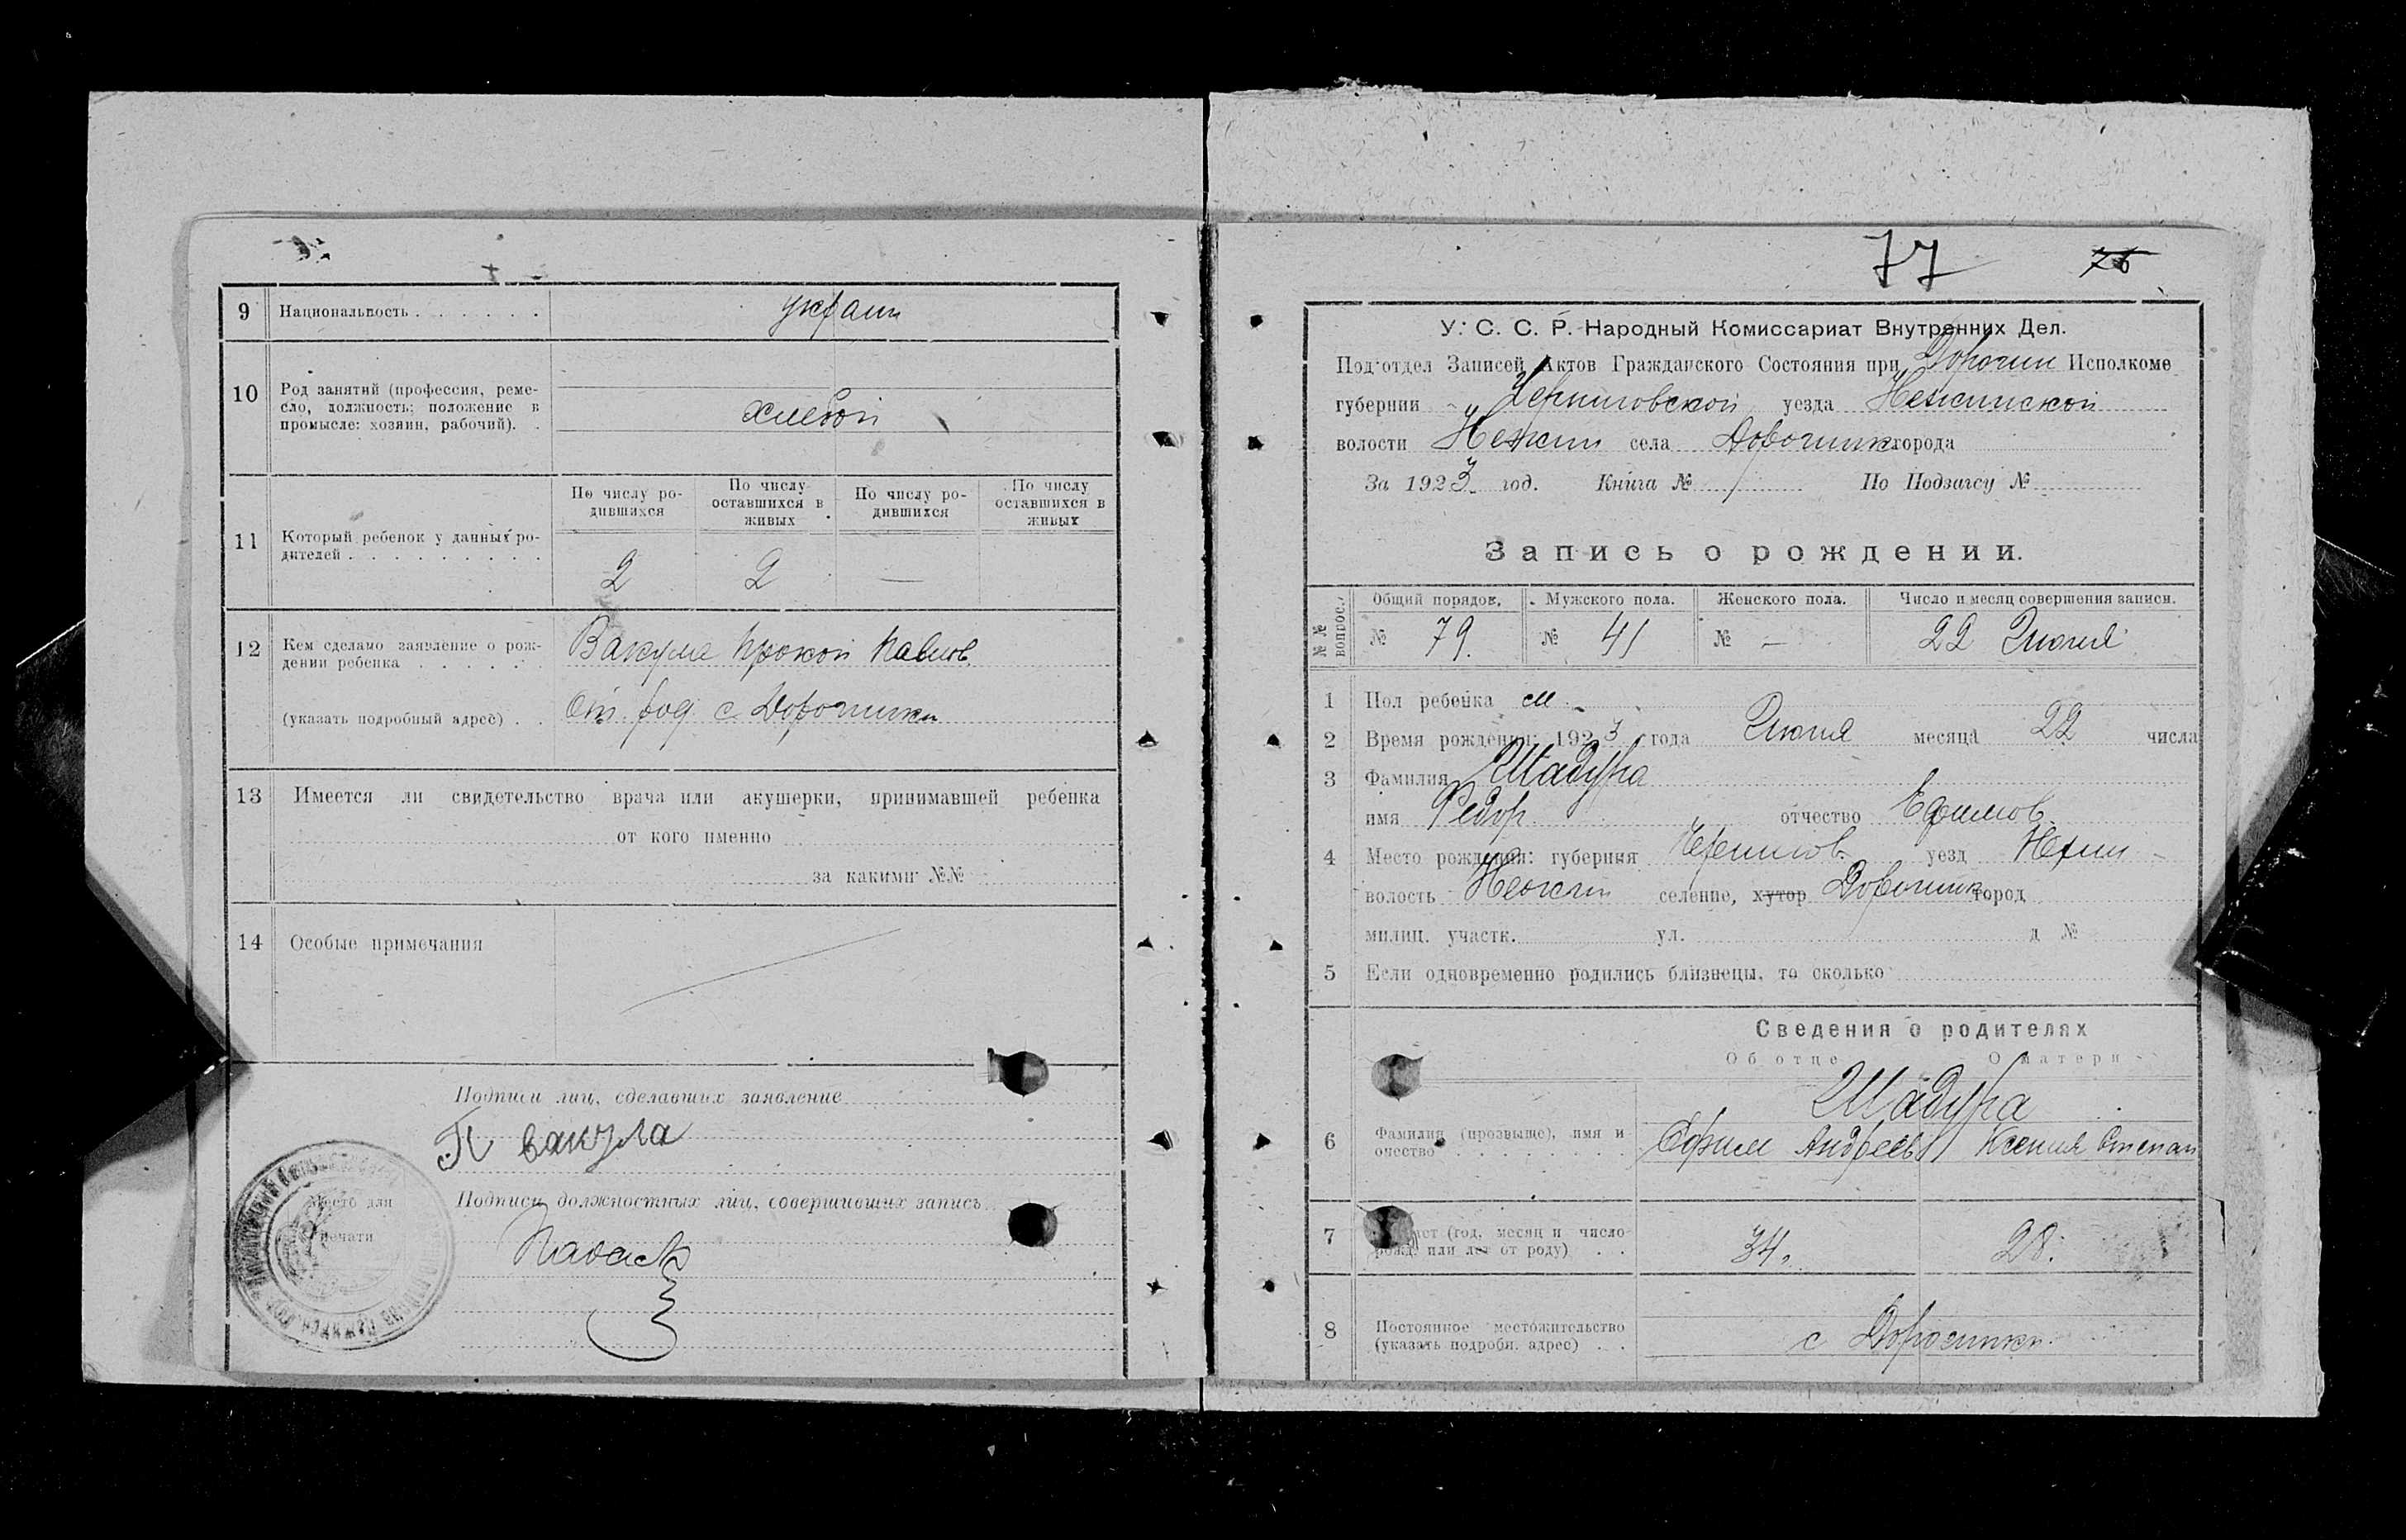 9 Национальность . . . . . . украин
10 Род занятий (профессия, реме-
сло, должность; положение в
промысле: хозяин, рабочий). .
хлебоп
По числу ро-
дившихся
По числу
оставшихся в
живых
По числу ро-
дившихся
По числу
оставшихся в
живых
11 Который ребенок у данных ро-
дителей . . . . . . . . .
2 2 —
12 Кем сделано заявление о рож-
дении ребенка . . . . . Вакула Прокоп Павлов
(указать подробный адрес) . . с. Дорогинки
13 Имеется ли свидетельство врача или акушерки, принимавшей ребенка
от кого именно
за какими №№
14 Особые примечания
Подписи лиц, сделавших заявление
П Вакула
Место для
печати
Подписи должностных лиц, совершивших запись
77 76
У. С. С. Р. Народный Комиссариат Внутренних Дел.
Под'отдел Записей Актов Гражданского Состояния при Дорогин Исполкоме
губернии Черниговской уезда Нежинской
волости Нежин села Дорогинк города
За 1923 год. Книга № По Подзагсу №
Запись о рождении.
№№ вопрос. Общий порядок. Мужского пола. Женского пола. Число и месяц совершения записи.
№ 79. № 41 № — 22 Июля
1 Пол ребенка м
2 Время рождения: 1923 года Июля месяца 22 числа
3 Фамилия Шадура
имя Федор отчество Ефимов.
4 Место рождения: губерния Чернигов. уезд Нежин
волость Нежин селение, хутор Дорогинк город
милиц. участк. ул. д №
5 Если одновременно родились близнецы, то сколько
Сведения о родителях
Об отце О матери
Шадура
6 Фамилия (прозвище), имя и
очество . . . . . . . . Ефим Андреев Ксения Степан
7 (год, месяц и число
рожд. или лет от роду) . . 34. 28.
8 Постоянное местожительство
(указать подробн. адрес) . . с Дорогинки.